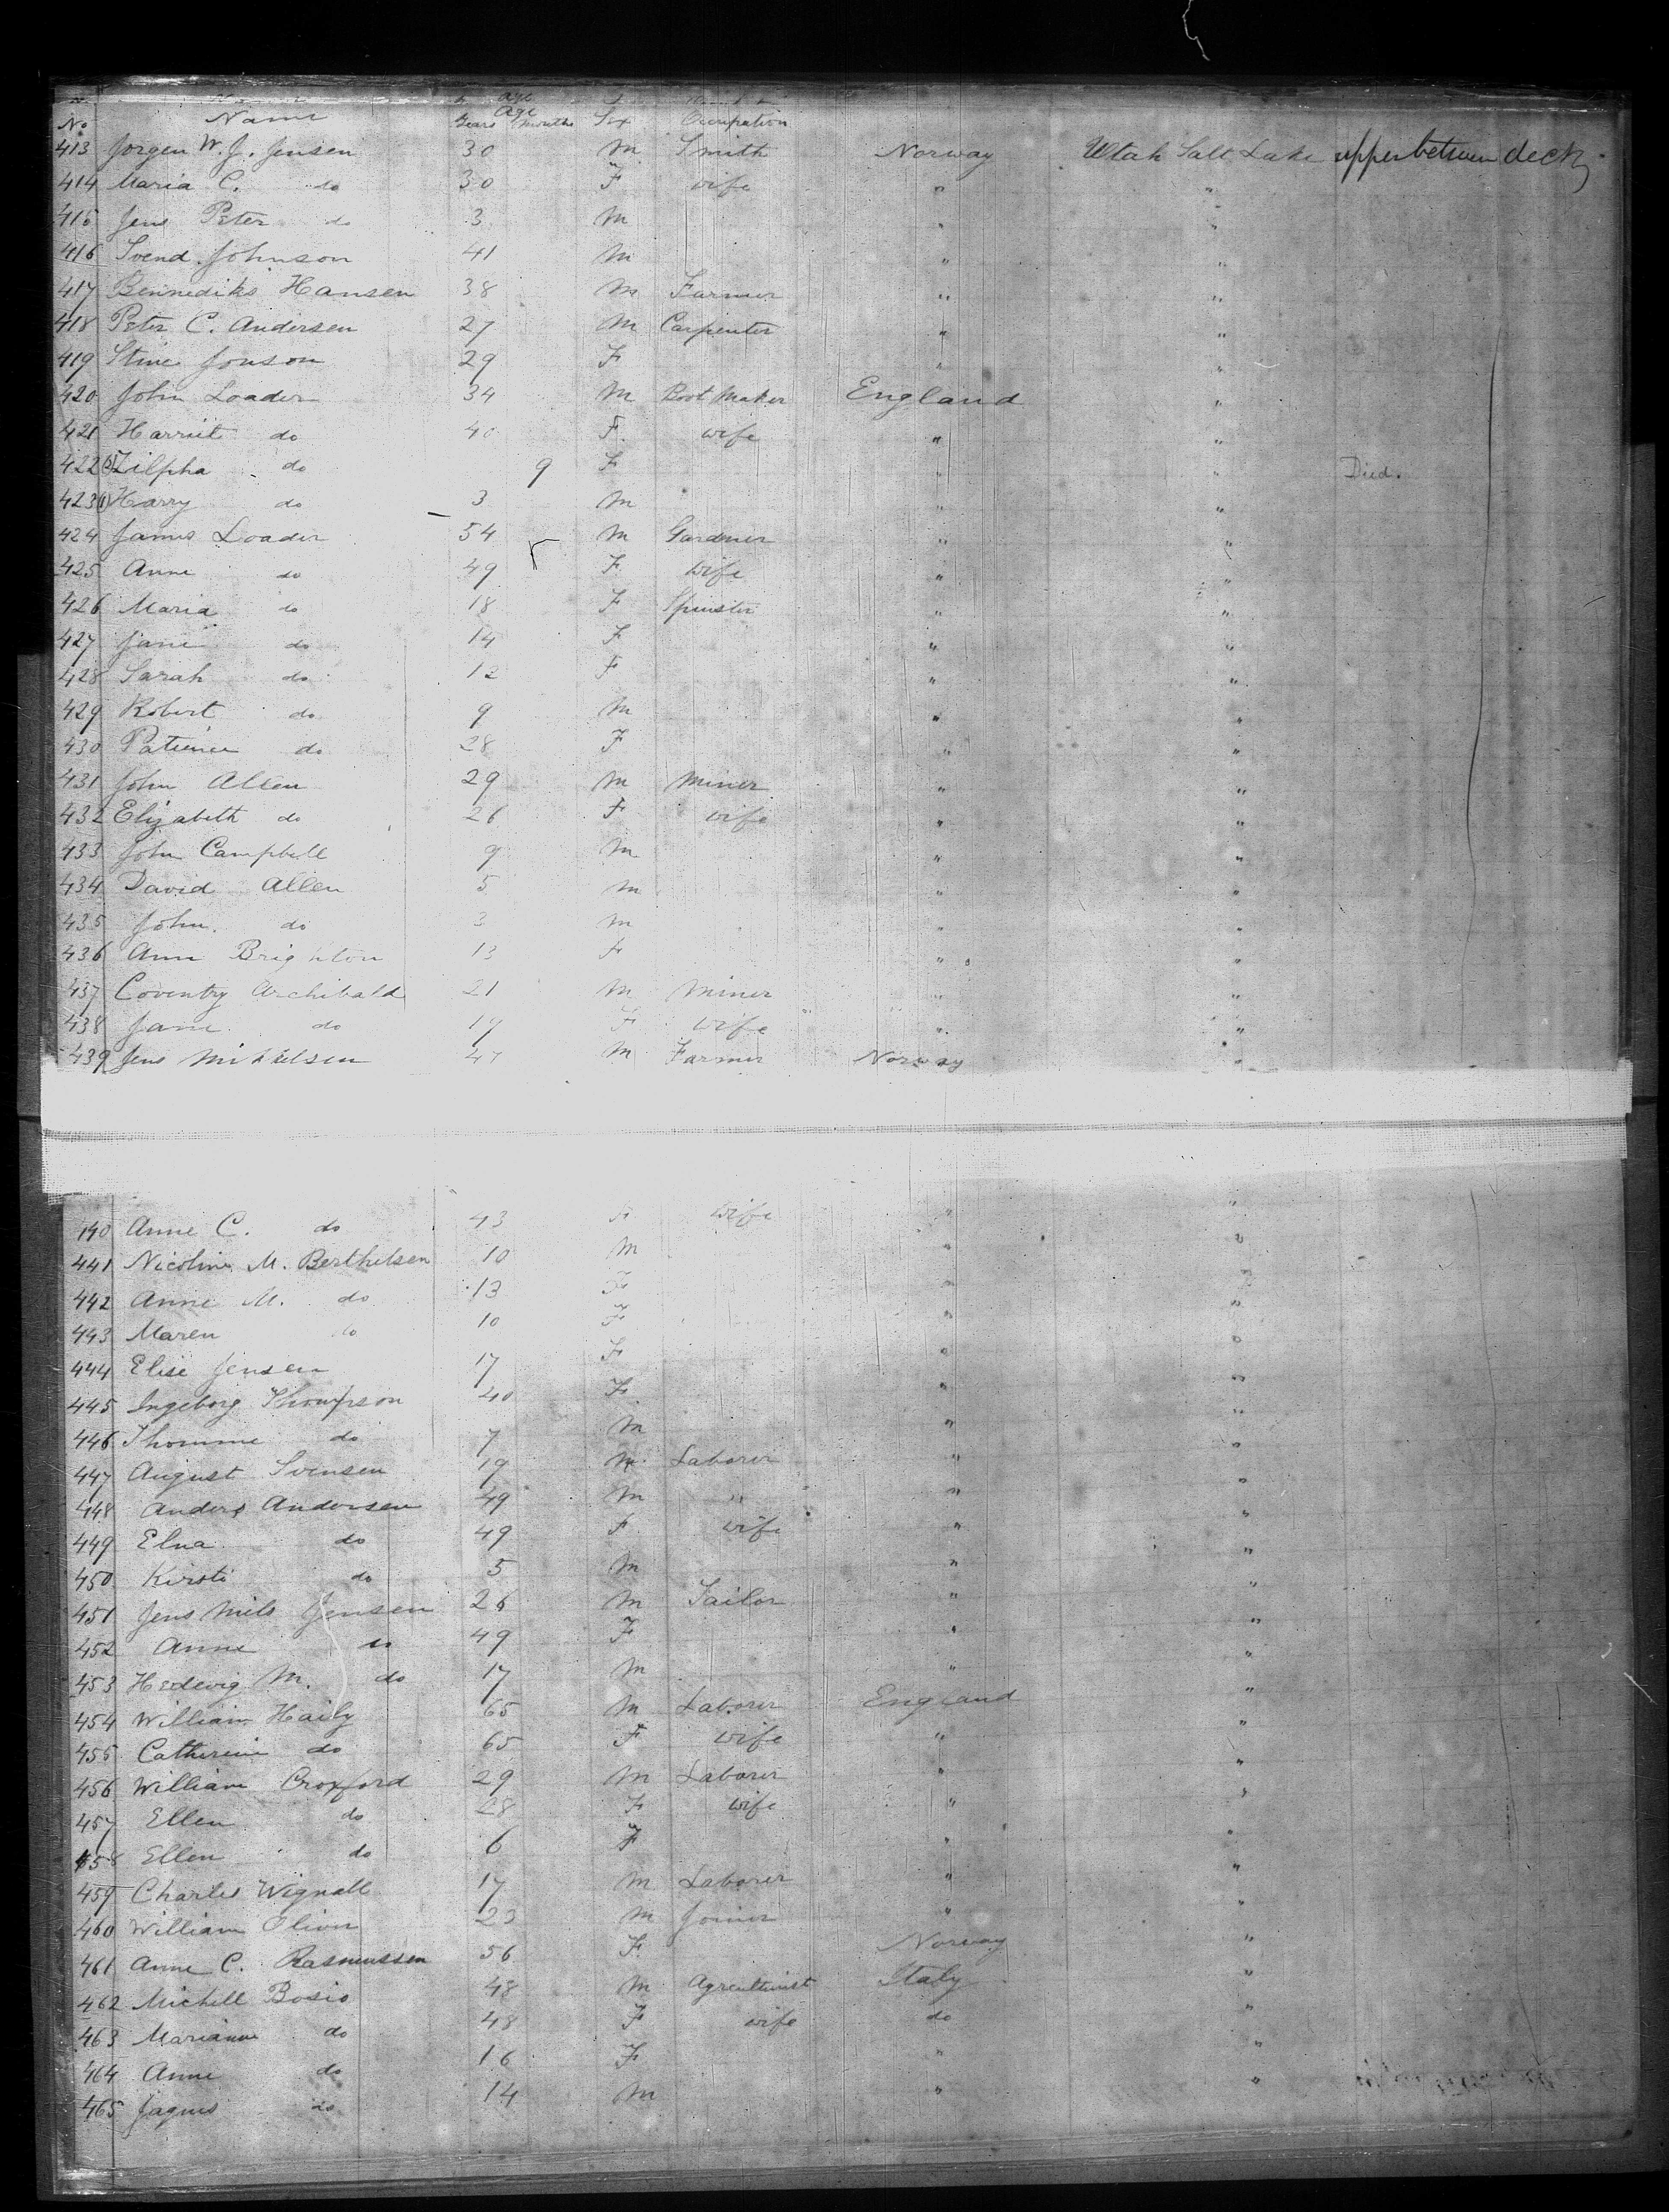 Age
No Name Years Age Months Sex Occupation
413 Jorgen W. J. Jensen 30 M Smith Norway Utah Salt Lake upper between deck
414 Maria C. do 30 F wife " "
415 Jens Peter do 3 M " "
416 Svend Johnson 41 M " "
417 Bennediks Hansen 38 M Farmer " "
418 Peter C. Andersen 27 M Carpenter " "
419 Stine Jonson 29 F " "
420 John Loader 34 M Boot Maker England "
421 Harriet do 40 F. wife " "
422 Zilpha do 9 F " " Died.
423 Harry do 3 M " "
424 James Loader 54 M Gardner " "
425 Anne do 49 F wife " "
426 Maria do 18 F Spinster " "
427 Jane do 14 F " "
428 Sarah do 12 F " "
429 Robert do 9 M " "
430 Patience do 28 F " "
431 John Allen 29 M Miner " "
432 Elizabeth do 26 F wife " "
433 John Campbell 9 M " "
434 David Allen 5 M " "
435 John do 3 M " "
436 Ann Brighton 13 F " "
437 Coventry Archibald 21 M Miner " "
438 Jane do 19 F wife " "
439 Jens Mikkelsen 47 M Farmer Norway "
440 Anne C. do 43 F wife " "
441 Nicoline M. Berthelsen 10 M " "
442 Anne M. do 13 F " "
443 Maren do 10 F " "
444 Elise Jensen 17 F " "
445 Ingeborg Thompson 40 F " "
446 Thomme do 7 M " "
447 August Svensen 19 M Laborer " "
448 Anders Andersen 49 M " " "
449 Elna do 49 F wife " "
450 Kirsti do 5 M " "
451 Jens Niels Jensen 26 M Tailor " "
452 Anne do 49 F " "
453 Hedevig M. do 17 M " "
454 William Haily 65 M Laborer England "
455 Catherine do 65 F wife " "
456 William Croxford 29 M Laborer " "
457 Ellen do 28 F wife " "
458 Ellen do 6 F " "
459 Charles Wignall 17 M Laborer " "
460 William 23 M Joiner " "
461 Anne C. Rasmussen 56 F Norway "
462 Michell Bosio 48 M Agriculturist Italy "
463 Marianne do 48 F wife do "
464 Anne do 16 F " "
465 Jaques do 14 M " "